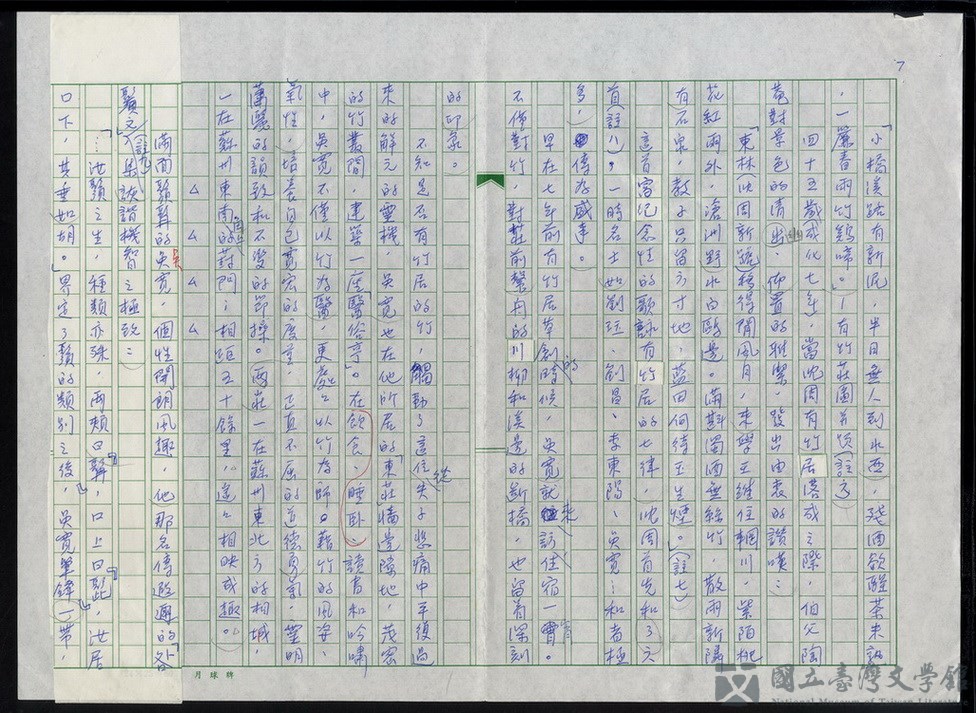 7
「小橋溪路有新泥,半日無人到水西,殘酒欲醒茶未熟
,一簾春雨竹鷄啼。」—有竹莊圖并頌(註六)
四十五歲成化七年,當沈周有竹居落成之際,伯父陶
菴對景色的清幽,佈置的雅潔,發出由衷的讚嘆:
「東林(沈周新號)移得閒風月,來學王維住輞川,紫陌桃
花紅雨外,滄洲野水白鷗邊。滿斟蜀酒無絲竹,散雨新陽
有石泉,教子只留方寸地,藍田何待玉生煙。」(註七)
這首富記念性的歌詠有竹居的七律,沈周首先和了六
首(註八),一時名士如劉珏、劉昌、李東陽、吳寬…和者極
多,傳為盛事。
早在七年前有竹居草創的時候,吳寬就來訪,住宿一宵。
不僅對竹,對莊前繫舟的川柳和溪邊的斷橋,也留着深刻
的印象。
不知是否有竹居的竹,觸動了這位從失子悲痛中平復過
來的解元的靈機,吳寬也在他所居的「東莊」牆旁隙地,茂密
的竹叢間,建築一座「醫俗亭」。在飲食、睡卧、讀書和吟嘯
中,吳寬不僅以竹為醫,更處處以竹為師。藉竹的風姿、
氣性,培養自己寬宏的度量,正直不屈的道德勇氣,簫明
蕭颺的韻致和不變的節操。兩莊一在蘇州東北方的相城,
一在蘇州東南角的葑門;相距五十餘里,遙遙相映成趣。
△ △ △ △
滿面鬍髯的吳寬,個性開朗風趣,他那名傳遐邇的「各
鬚文」(註九)是詼諧機智之極致:
「…泄鬚之生,種類亦殊,兩頰曰髯,口上曰髭,泄居
口下,其垂如胡。」界定了鬚的類別之後,吳寬筆鋒一帶,
月球牌
國立臺灣文學館
National Museum of Taiwan Literature